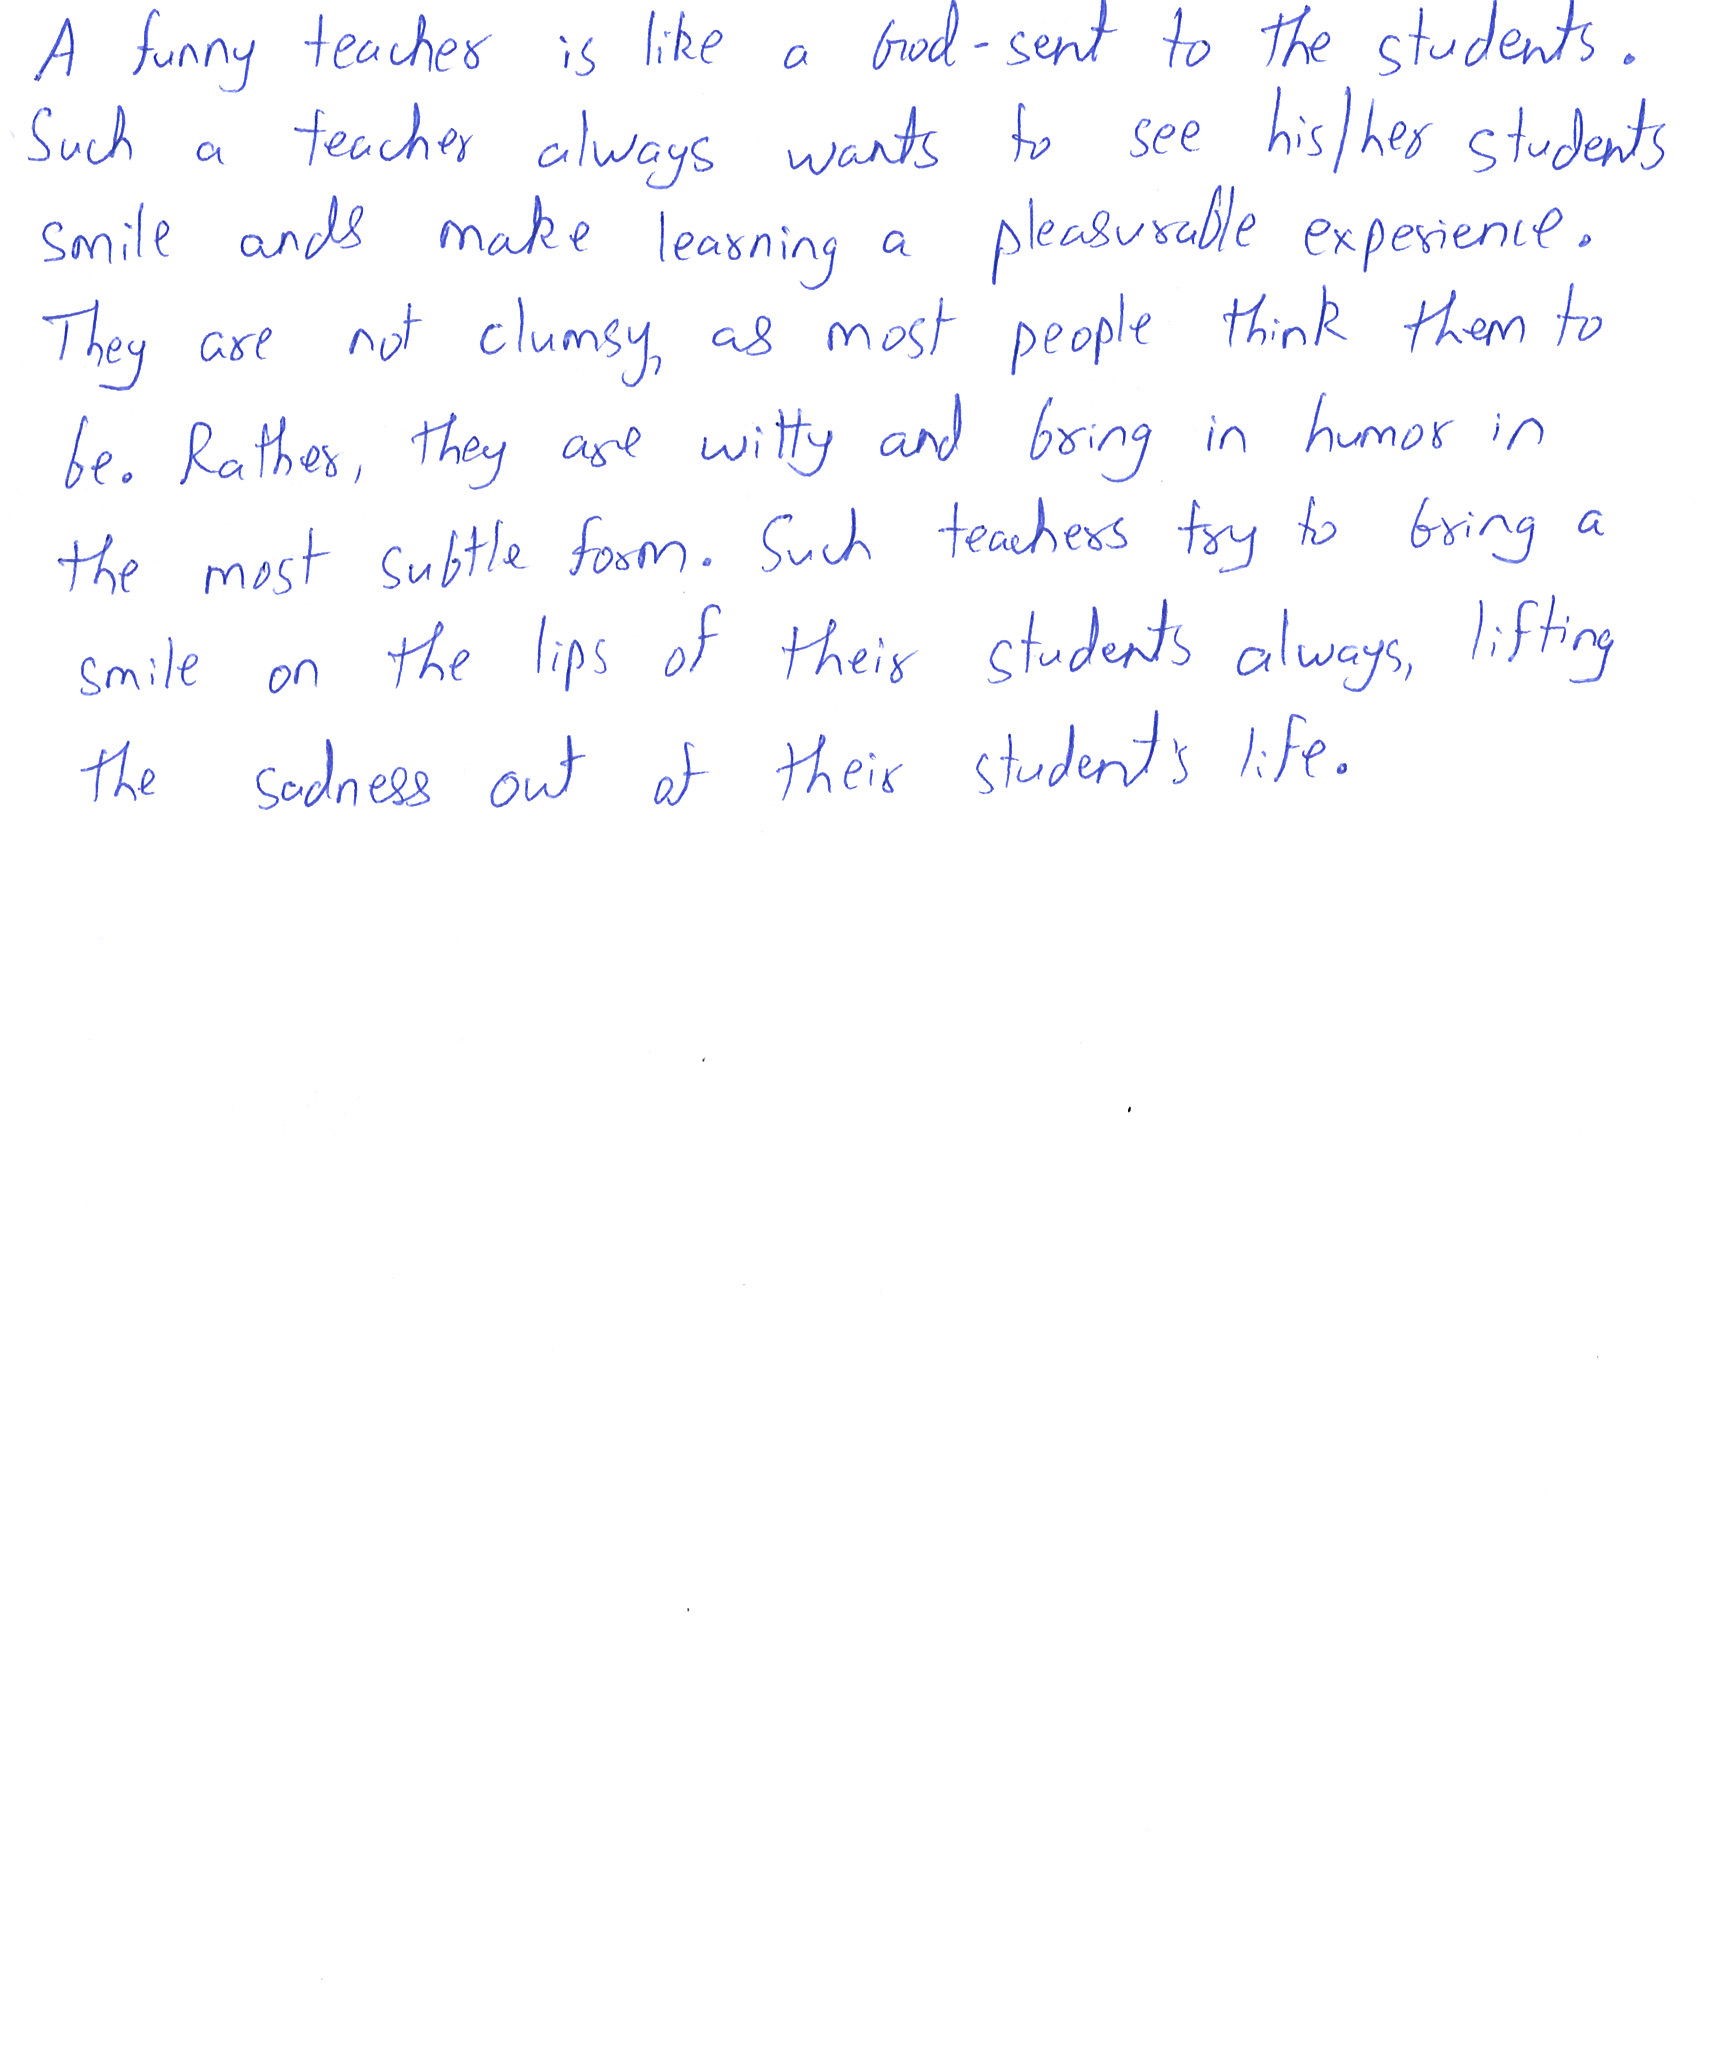 A funny teacher is like a God-sent to the students.
Such a teacher always wants to see his/her students
smile ands make learning a pleasurable experience.
They are not clumsy, as most people think them to
be. Rather, they are witty and bring in humor in
the most subtle form. Such teachers try to bring a
smile on the lips of their students always, lifting
the sadness out of their student's life.